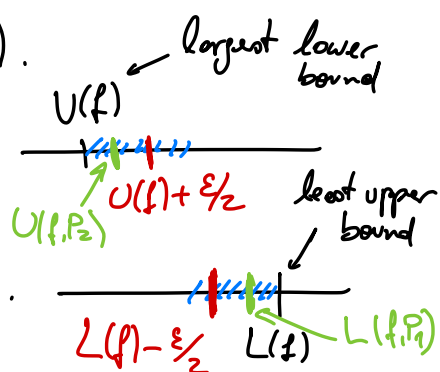 ).
largest lower
bound
U(f)
U(f)+ ε/2
U(f,P₂)
least upper
bound
.
L(f)- ε/2
L(f)
L(f,P₁)